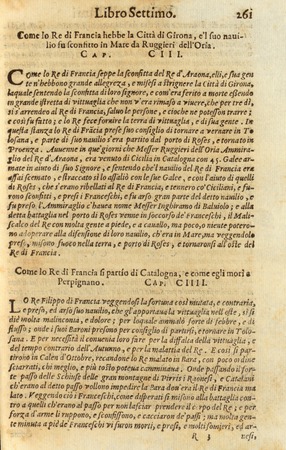 Libro Settimo. 261
Come lo Re di Francia hebbe la Città di Girona, e'l suo naui-
lio fu sconfitto in Mare da Ruggieri dell'Oria.
CAP. CIII.
COme lo Re di Francia seppe la sconfitta del Re d'Araona, elli, e sua gen
te n'hebbono grande allegrezza, e misesi a strignere la Città di Girona,
laquale sentendo la sconfitta di loro signore, e com'era ferito a morte essendo
in grande stretta di vittuaglia che non v'era rimaso a viuere, che per tre dì,
si s'arrendeo al Re di Francia, saluo le persone, e
e così fu fatto; e lo Re fece fornire la terra di vittuaglia, e di sua gente. In
questa stanza lo Re di Frācia prese suo consiglio di tornare a vernare in To
losana, e parte di suo nauilio s'era partito dal porto di Roses, e tornato in
Proenza. Auuenne in que' giorni che Messer Ruggieri dell'Oria Ammira-
glio del Re d'Araona, era venuto di Cicilia in Catalogna con 45. Galee ar-
mate in aiuto di suo Signore, e sentendo che'l nauilio del Re di Francia era
assai scemato, e straccato si lo assalio con le sue Galee, e con l'aiuto di quelli
di Roses, che s'erano ribellati al Re di Francia, e tennero co' Ciciliani, e fu-
rono sconfitti, e presi i Franceschi, e fu arso gran parte del detto nauilio, e
fu preso l'Ammiraglio c'hauea nome Messer Inghiramo di Baluolo; e alla
detta battaglia nel porto di Roses venne in soccorso de' Franceschi, il Mali-
scalco del Re con molta gente a piede, e a cauallo, ma poco, o niente potero-
no adoperare alla difensione di loro nauilio, ch'era in Mare, ma vedendolo
preso, misono fuoco nella terra, e porto di Roses, e tornaronsi all'oste del
Re di Francia.
Come lo Re di Francia si partio di Catalogna, e come egli morì a
Perpignano. CAP. CIIII.
LO Re Filippo di Francia veggendosi la fortuna così mutata, e contraria,
e presi, ed arso suo nauilio, che gli apportaua la vittuaglia nell'oste, si diè
molta malinconia, e dolore; per laquale ammalò forte di febbre, e di
flusso; onde i suoi Baroni presono per consiglio di partirsi, e tornare in Tolo-
sana. E per necessità il conuenia loro fare per la diffalta della vittuaglia, e
del tempo contrario dell'Autunno, e per la malattia del Re. E così si par-
tirono in Calen d'Ottobre, recandone lo Re malato in Bara, con poco ordine
sciarrati, chi meglio, e più tosto poteua camminaua. Onde passando al for-
te passo delle Schiuse delle gran montagne di Pirris i Raonesi, e Catalani
ch'erano al detto passo vollono impedire la Bara dou'era il Re di Francia ma
lato. Veggendo ciò i Franceschi, come disperati si misono alla battaglia contro
a coloro ch'erano al passo per non lasciar prendere il corpo del Re; e per
forza d'arme li ruppono, e sconfissono, e cacciaron de' passi; ma molta gen-
te minuta a piè de' Franceschi vi furon morti, e presi, e molti somieri, ed ar-
R 3 nesi,